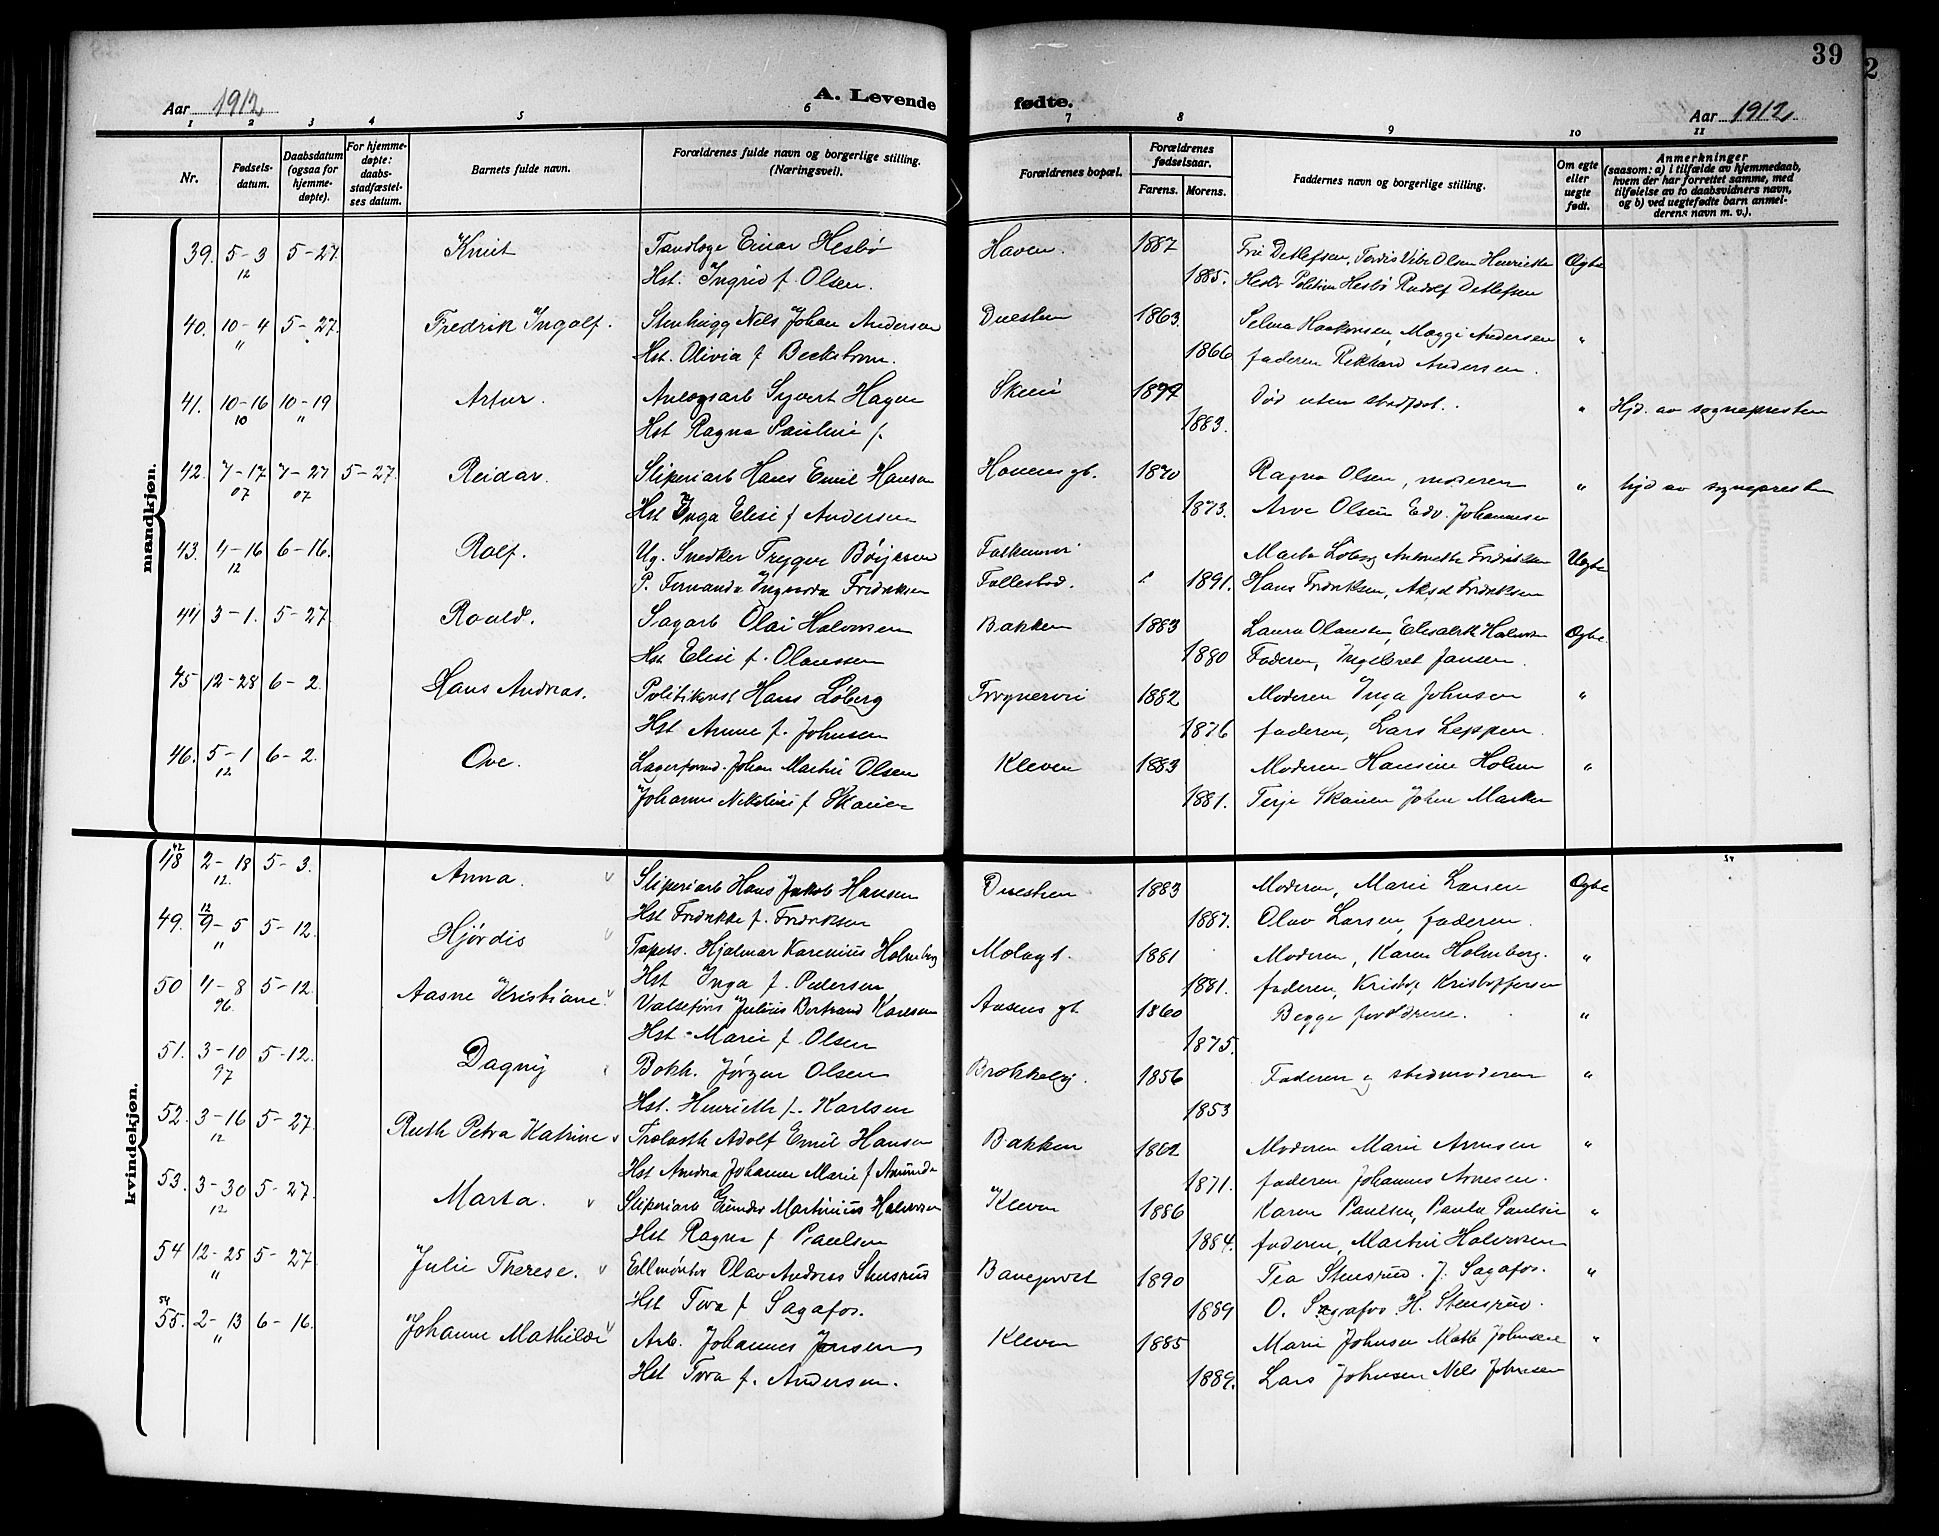 39
2
Aar 1912
A. Levende fødte.
Aar 1912
1 2 3 4 5 6 7 8 9 10 11
Nr.
Fødsels-
datum.
Daabsdatum
(ogsaa for
hjemme-
døpte).
For hjemme-
døpte:
daabs-
stadfæstel-
ses datum.
Barnets fulde navn.
Forældrenes fulde navn og borgerlige stilling.
(Næringsvei).
Forældrenes bopæl.
Forældrenes
fødselsaar.
Farens. Morens.
Faddernes navn og borgerlige stilling.
Om egte
eller
uegte
født.
Anmerkninger
(saasom: a) i tilfælde av hjemmedaab,
hvem der har forrettet samme, med
tilføielse av to daabsvidners navn,
og b) ved uegtefødte barn anmel-
derens navn m. v.).
mandkjøn.
39. 5-3 5-27. Knut Tandlæge Einar Hesbø Haven 1887 Fru Detlefsen, Olsen Henriette Egte
12 Hst. Ingrid f. Olsen. 1885. Hesbø Hesbø Rudolf Detlefsen
40. 10-4 5-27. Fredrik Ingolf. Stenhugg Nels Johan Andersen Duestien 1863. Selma Haakonsen, Maggi Andersen "
" Hst. Olivia f. Beckstrøm. 1866 faderen Rikhard Andersen.
41. 10-16 10-19 Artur. Anlægsarb Syvert Hagen Skien 1877 Død uten stadfæst. " Hjd. av sognepresten
10 " Hst Ragna Pauline f. 1883.
42. 7-17 7-27 5-27. Reidar. Sliperiarb Hans Emil Hansen Havensgt. 1870 Ragna Olsen, moderen " hjd av sognepresten
07 07 Hst Inga Elise f Andersen 1873. Arve Olsen Edv. Johannesen
43. 4-16 6-16. Rolf. Ug. Snedker Trygve Børjesen Marta Løberg Fredriksen Uegte
12 P. Fernanda Fridriksen Follestad. 1891. Hans Fridriksen, Aksel Fridriksen
44 3-1. 5-27. Roald. Sagarb Olai Halvorsen Bakken 1883 Laura Olaussen, Elisabeth Halvorsen Egte
Hst Elise f. Olaussen 1880 Faderen, Ingebret Jansen.
45 12-28 6-2. Hans Andreas. Politikonst Hans Løberg Frognervei 1882 Moderen Inga Johnsen "
Hst Anne f. Johnsen 1876 faderen, Lars Leppen.
46. 5-1 6-2. Ove. Lagerformd. Johan Martin Olsen Kleven 1883 Moderen Hansine Holm "
12 Johanne Nikoline f Skauen 1881. Terje Skauen Johan
kvindekjøn.
47
48 2-18 5-3. Anna. v Sliperiarb Hans Jakob Hansen Duestien 1883 Moderen, Marie Larsen Egte
12. Hst Fridrikke f. Fridriksen 1887. Olav Larsen, faderen.
49. 12
9-5 5-12. Hjørdis v Tapets. Hjalmar Karenius Holmberg Mælagt. 1881 Moderen, Karen Holmberg. "
" Hst Inga f. Pedersen 1881. faderen, Kristof Kristoffersen
50 4-8 5-12. Aasne Kristiane v Valsefører Julius Bertrand Karlsen Aasens gt. 1860 Begge forældrene. "
96. Hst Marie f. Olsen 1875.
51. 3-10 5-12. Dagny v Bokh. Jørgen Olsen Brekkeby. 1856 Faderen og stedmoderen "
97 Hst. Henriette f. Karlsen 1853
52. 3-16 5-27. Ruth Petra Katrine v Trælastb Adolf Emil Hansen Bakken 1862 Moderen Marie Arnesen "
12 Hst Andrea Johanne Marie f Amunds 1871. faderen Johannes Arnesen.
53. 3-30 5-27. Marta. v Sliperiarb Gunder Martinius Halvorsen Kleven 1886 Karen Paulsen, Paula Paulsen "
12 Hst Ragna f Paulsen 1884. faderen, Martin Halvorsen
54 12-25 5-27. Julie Therese. v Ellmontør Olav Andreas Stensrud Banejordet 1890 Tea Stensrud. J. Sagafos. "
" Hst Tora f Sagafos. 1889 O. Sagafos H. Stensrud.
54
55. 2-13 6-16. Johanne Mathilde v Arb. Johannes Jensen Kleven 1885 Marie Johnsen Mathe Johnsen "
" Hst Tora f. Andersen. 1889. Lars Johnsen Nels Johnsen